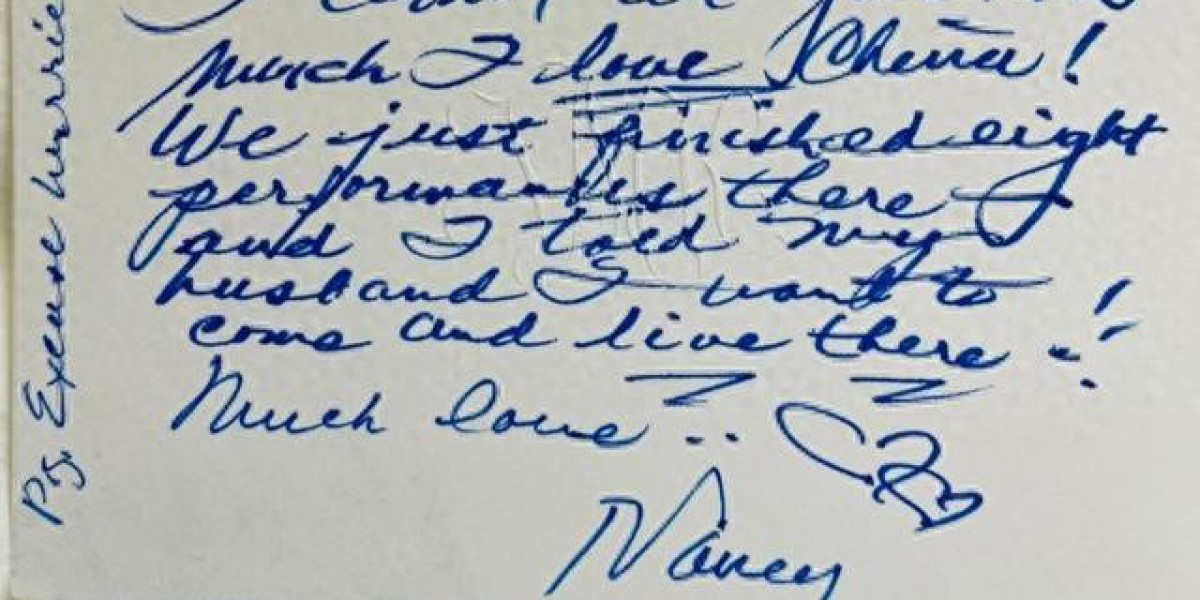 much I love China!
We just finished eight
performances there
and I told my
husband I want to
come and live there..!
Much love..
Nancy
P.S. Excuse hurrie